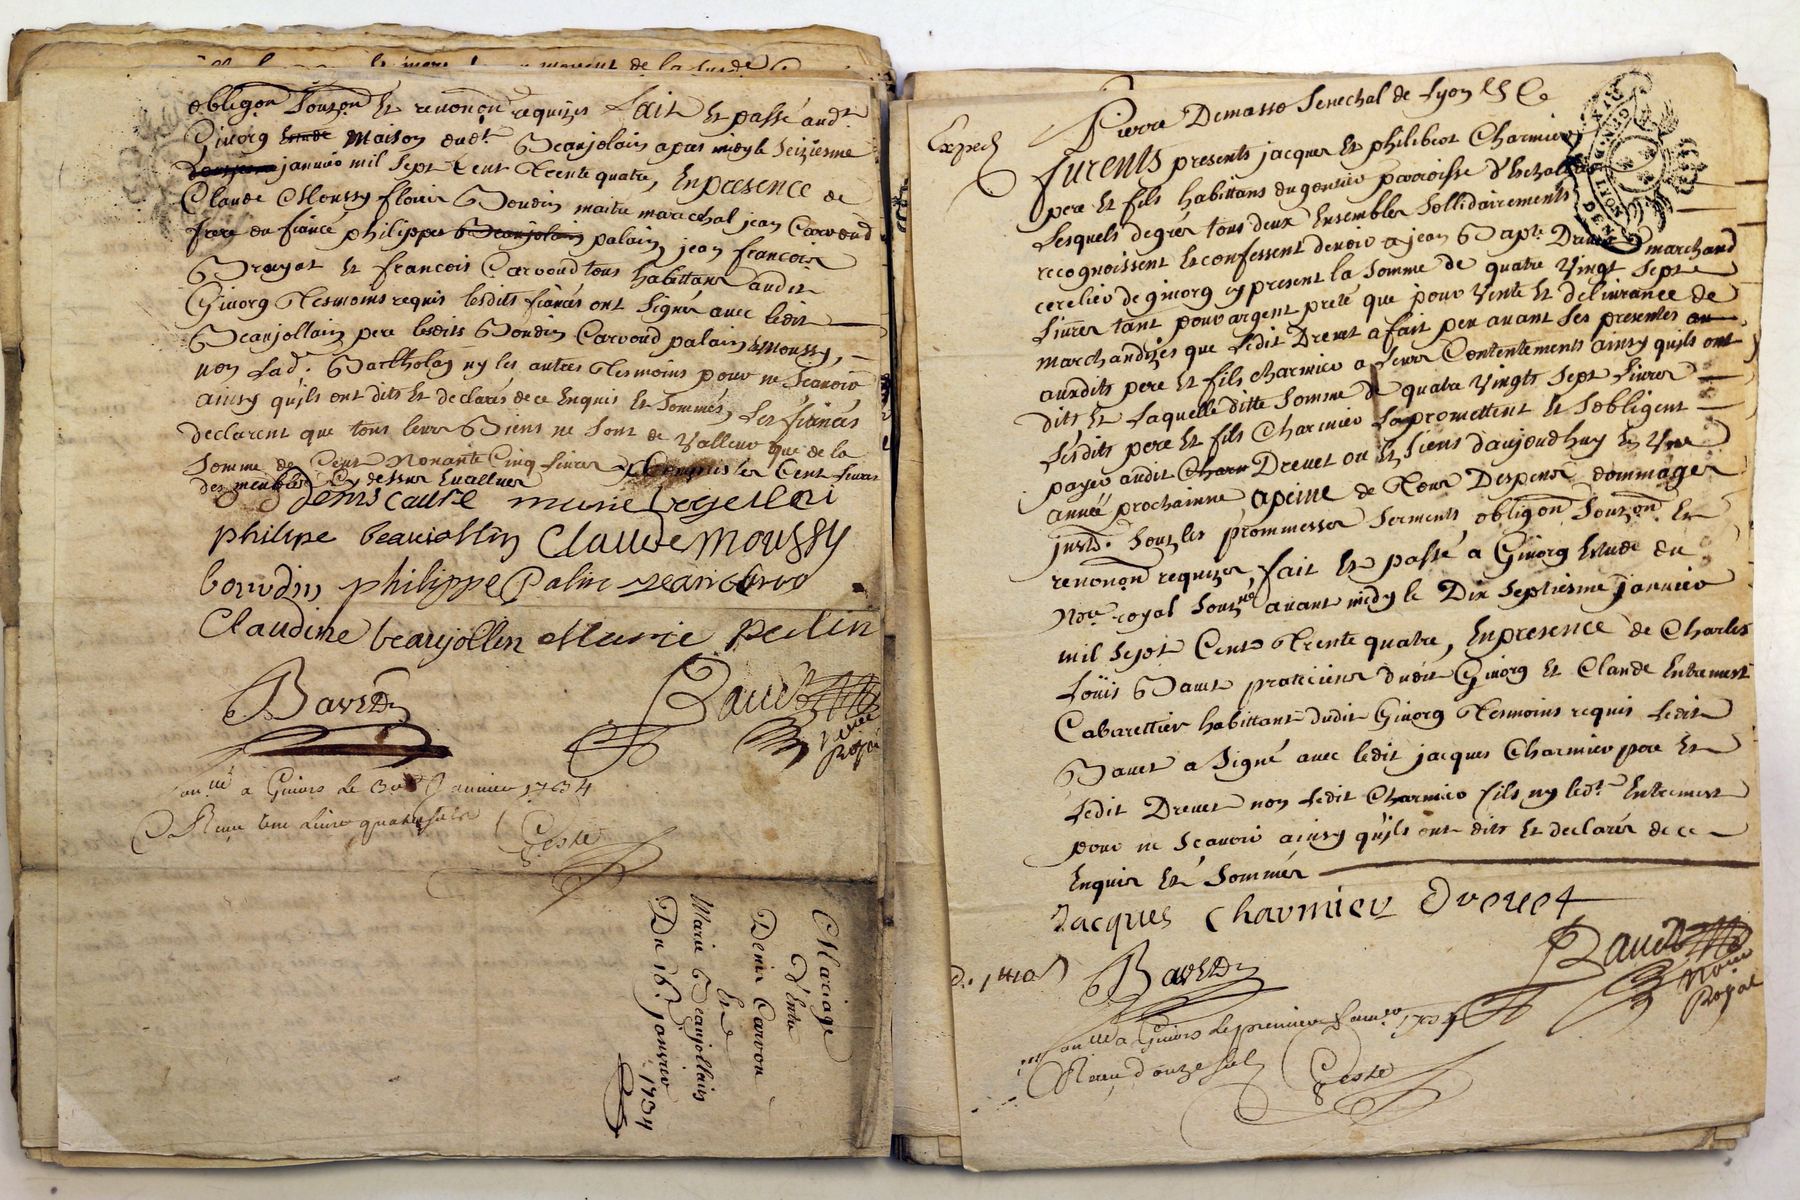 obligon soubzon Et renonon requizes Fait Et passé audt
Givorq Maison dudt Beaujolain apres midy le seiziesme
janvier mil sept Cent Trente quatre, En presence de
Claude Moussy flouris Bourdin maitre marechal jean Carvoud
frere du fiancé philippes palain jean francois
Brouyat Et francois Carvoud tous habittans audit
Givorq Tesmoins requis lesdits fiancés ont signés avec ledit
Beaujollain pere lesdits Bourdin Carvoud palain & Moussy,
non lad. Bartholay ny les autres Tesmoins pour ne sçavoir
ainsy qu'ils ont dits Et declarés de ce Enquis Et sommés, Les fiancés
declarent que tous leurs Biens ne sont de Valleur que de la
somme de Cent Nonante Cinq livres y Compris les Cent livres
des meubles Cy dessus Evallues
denis carve marie
philipe beauiollin Claude Moussy
bourdin philippe Palin Jean
Claudine beaujollin Marie perlin
Baved
Baud
Noire
Royal
con llé a Givors le 30e Janvier 1734
Receu une Livre quatre sols
Geste
Mariage
D'Entre
Denis Carvou
Et
Marie Beaujollain
Du 16. janvier 1734
Pierre Demasso Senechal de Lyon &c
Exped
furents presents jacques Et philibert Charmier
pere Et fils habittans du gontier parroisse d'Echallas
Lesquels de grés tous deux Ensembles sollidairements
recognoissent Et confessent devoir a jean Bapte Drevet marchand
cerclier de givorq cy present la somme de quatre Vingt sept
Livres tant pour argent preté que pour Vente Et delivrance de
marchandizes que Ledit Drevet a fait peu avant Ses presentes
auxdits pere Et fils Charmier a Leurs Contentements ainsy qu'ils ont
dits Et Laquelle ditte somme de quatre Vingts sept Livres
Lesdits pere Et fils Charmier promettent Et s'obligent
payer audit Drevet ou Es siens d'aujourdhuy En Une
année prochainne apeine de Tous Despens dommages
jnsts. Soubs les prommesses serments obligon soubzon Et
renonon requizes, fait Et passé a Givorq Estude du
Nore royal soubzné avant midy le Dix septiesme janvier
mil sept Cent Trente quatre, En presence de Charles
Loüis Bavet praticiens dudit Givorq Et Claude Entremont
Cabarettier habittants dudit Givorq Tesmoins requis Ledit
Bavet a signé avec ledit jacques Charmier pere Et
Ledit Drevet non Ledit Charmier fils ny ledt Entremont
pour ne sçavoir ainsy qu'ils ont dits Et declarés de ce
Enquis Et sommés
Jacques Charmier Drevet
Baved
Baud
Noire
Royal
con llé a Givors le premier 1734
Receu douze sols
Geste